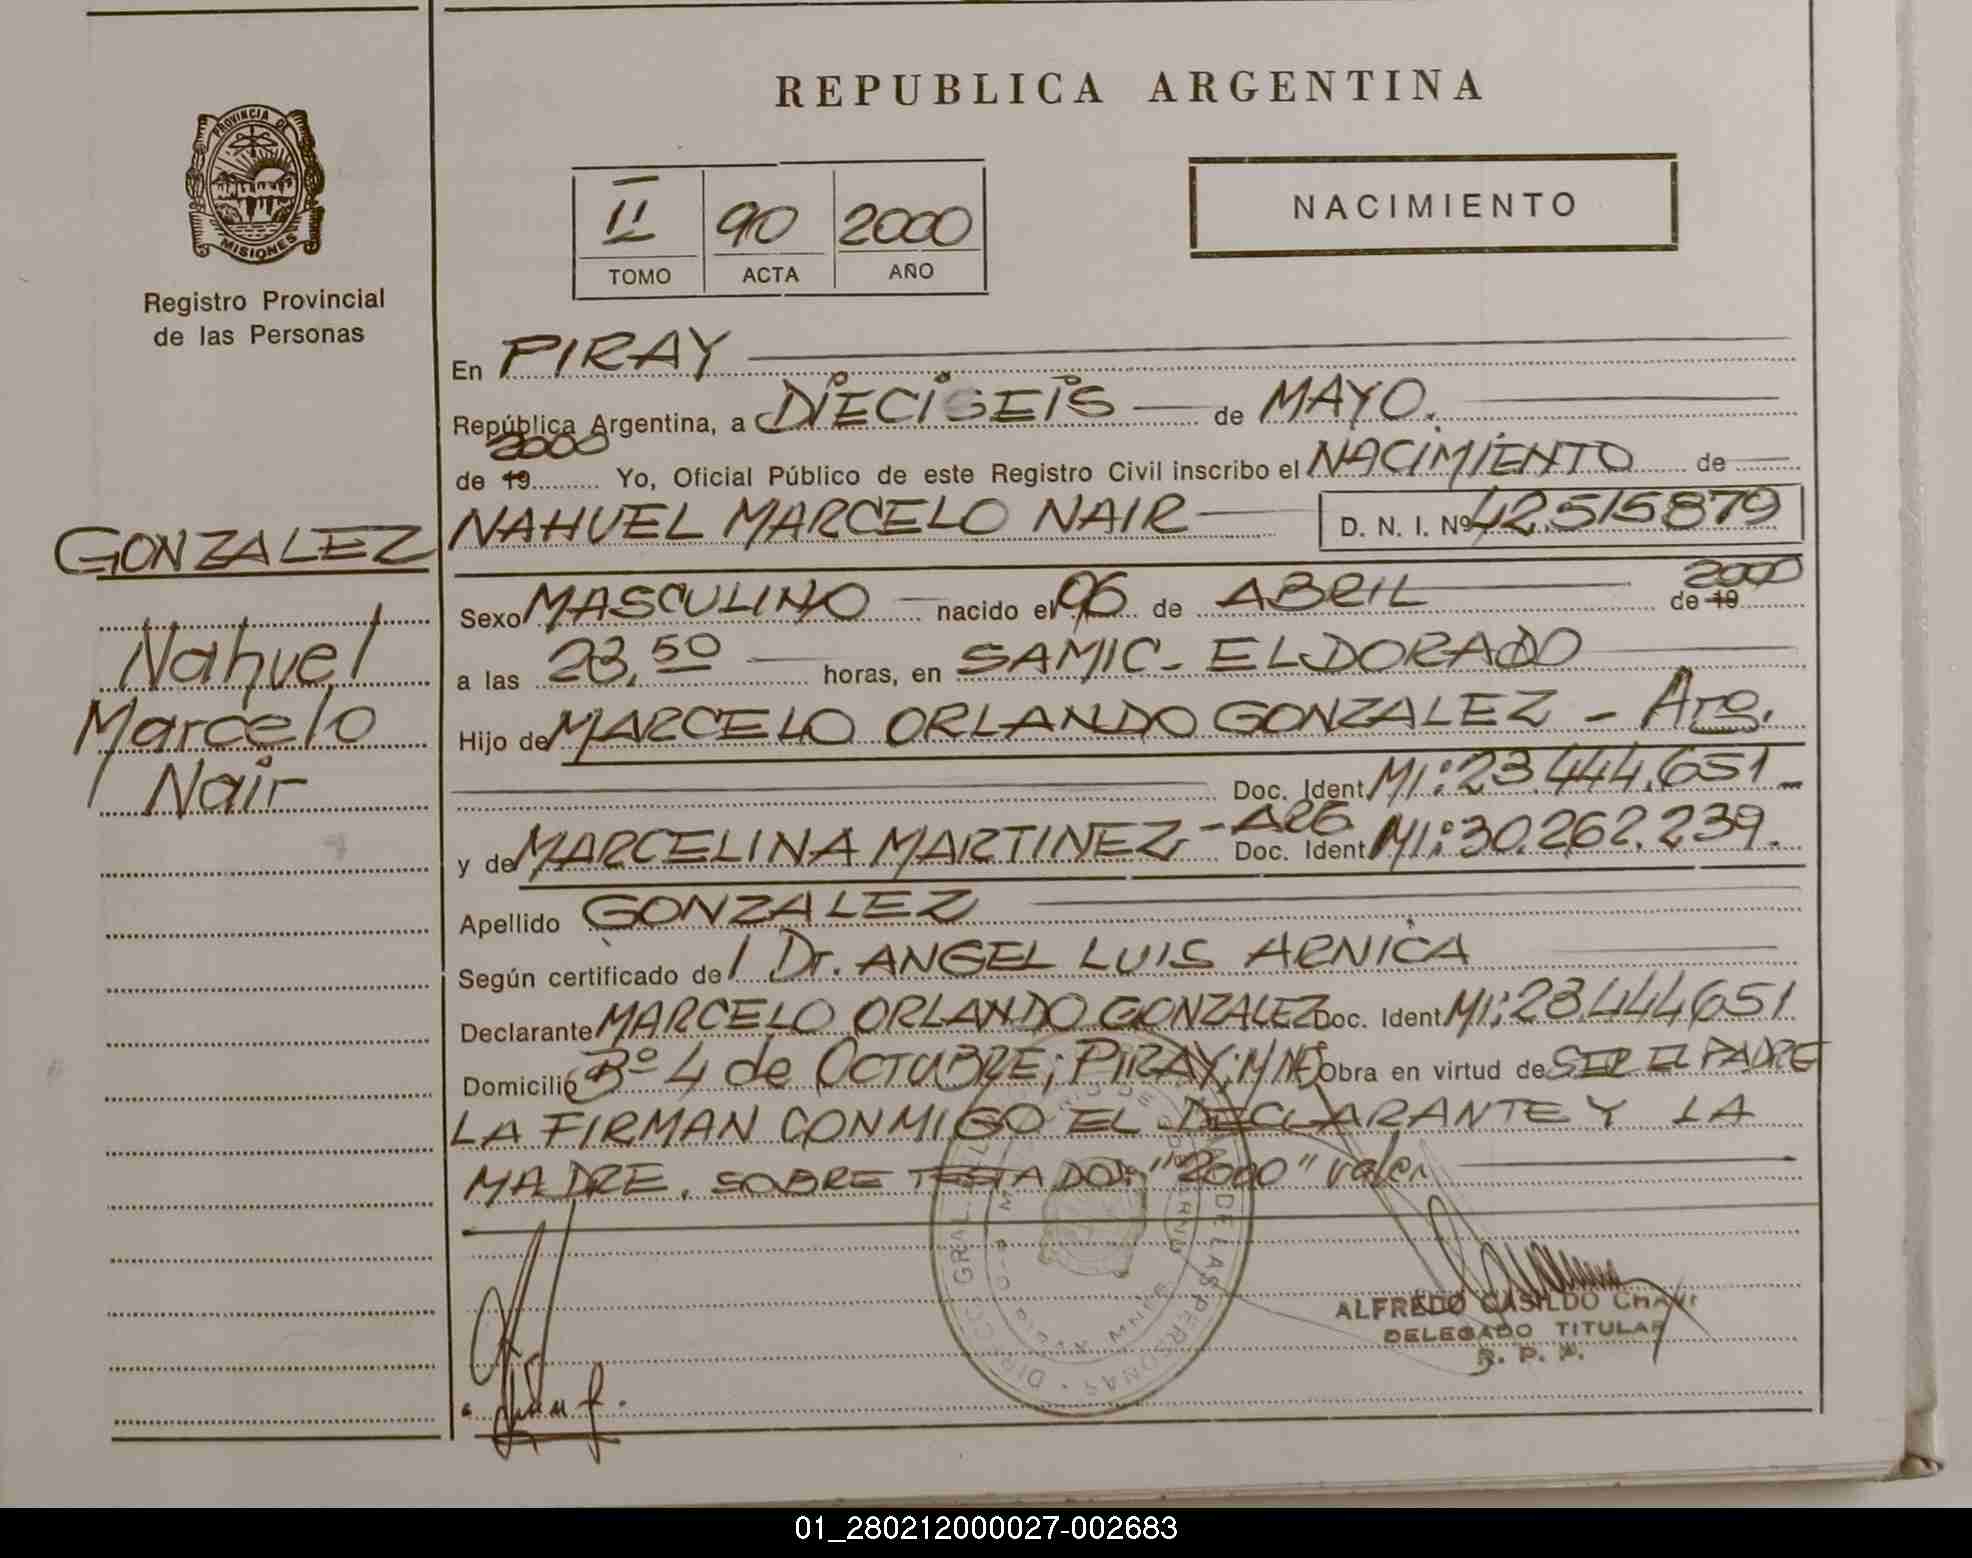 REPUBLICA ARGENTINA
PROVINCIA DE
MISIONES
Registro Provincial
de las Personas
II 90 2000
TOMO ACTA AÑO
NACIMIENTO
En PIRAY
República Argentina, a DIECISEIS de MAYO.
2000
de 19 Yo, Oficial Público de este Registro Civil inscribo el NACIMIENTO de
GONZALEZ
Nahuel
Marcelo
Nair
NAHUEL MARCELO NAIR D. N. I. Nº 42.515879
Sexo MASCULINO nacido el 06 de ABRIL de 19 2000
a las 23,50 horas, en SAMIC - ELDORADO
Hijo de MARCELO ORLANDO GONZALEZ - Arg.
Doc. Ident MI: 23.444.651 -
y de MARCELINA MARTINEZ - ARG Doc. Ident MI: 30.262.239.
Apellido GONZALEZ
Según certificado de Dr. ANGEL LUIS ARNICA
Declarante MARCELO ORLANDO GONZALEZ Doc. Ident MI: 23.444651
Domicilio Bº 4 de OCTUBRE; PIRAY; MNES Obra en virtud de SER EL PADRE
LA FIRMAN CONMIGO EL DECLARANTE Y LA
MADRE. SOBRE TESTADO: "2000" valen
ALFREDO CASILDO
DELEGADO TITULAR
R. P. P.
DE LAS PERSONAS
01_280212000027-002683